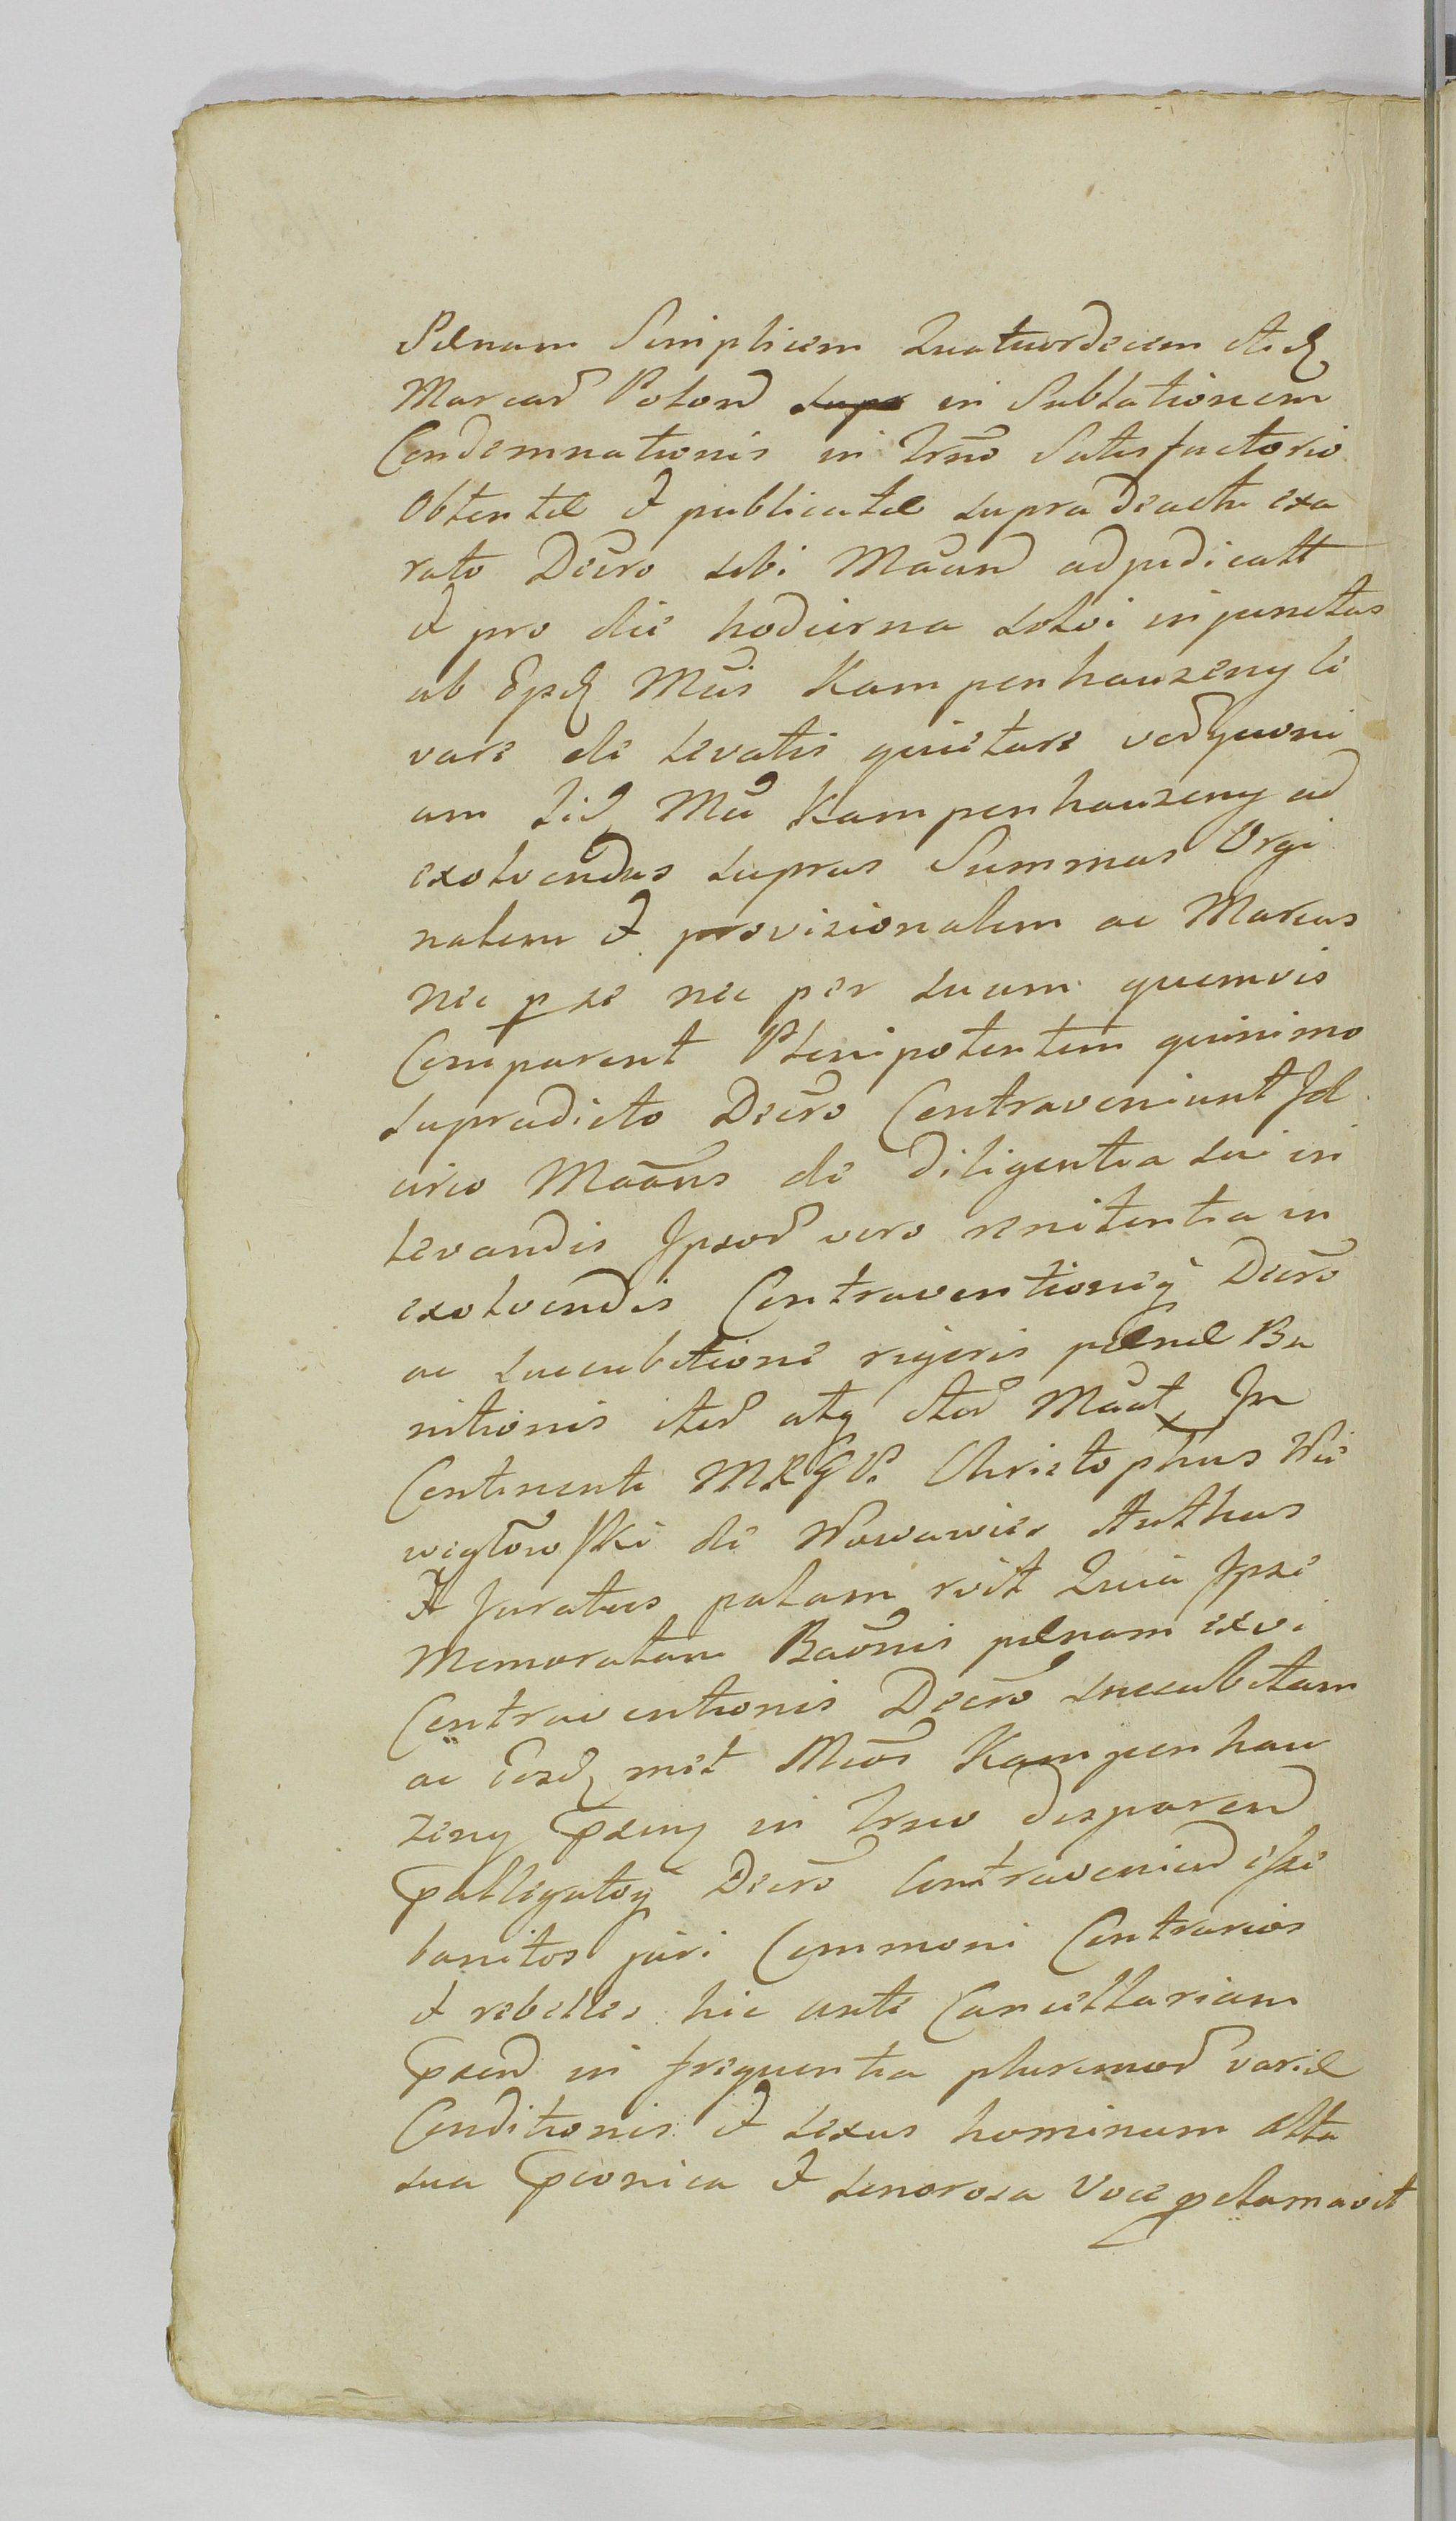 Pænam Simplicem Quatuordecim
Marcar Polon in Sublationem
Condemnationis in Trno Satisfactorio
Obtentæ et publicatæ supra de actu exa
rato Decro sibi Maand adjudicatt
et pro die hodierna solvi injunctas
ab Mcis Kampenhauzeny le
vare de levatis quietare
am Mci Kampenhauzeny ad
exolvendas supras Summas Orgi
nalem et provisionalem ac Marcas
nec p se nec per suum quemvis
Comparent Plenipotentem quinimo
supradicto Decro Contraveniunt Id
circo Maans de diligentia sui in
levandis Ipsor vero renitentia in
exolvendis Contraventioneq Decro
ac succubitione rigoris pænæ Ba
nitionis iter atq iter Maat In
Continenti MRGP. Christophus Wie
wiglowski de Wowawies Authus
et Juratus palam rvit Quia Ipsi
Memoratam Baonis pænam ex vi
Contraventionis Decro succubitam
ac met Mcos Kampenhau
zeny in Trno
Decro Contraveniend esse
banitos juri Communi Contrarios
et rebelles hic ante Cancellariam
in frequentia plurimor variæ
Conditionis et sexus hominum alta
sua et sonorosa Voce pclamavit